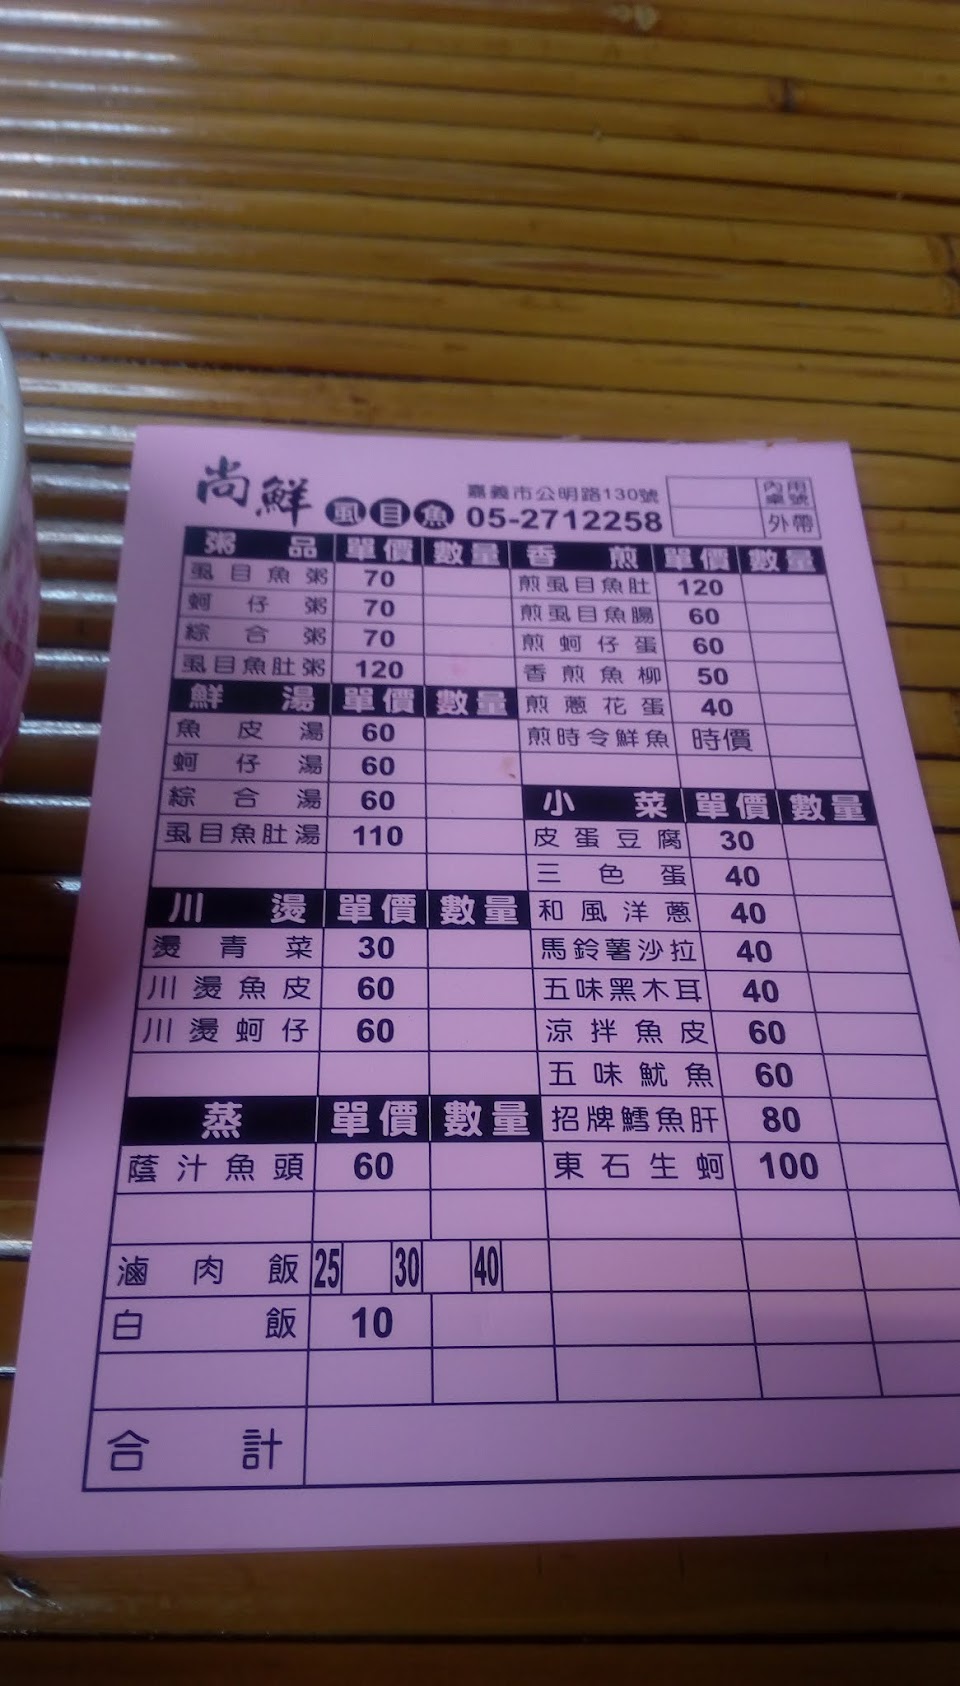 尚鮮虱目魚
嘉義市公明路130號
05-2712258
內用
桌號
外帶
粥品 單價 數量
虱目魚粥 70
蚵仔粥 70
綜合粥 70
虱目魚肚粥 120
鮮湯 單價 數量
魚皮湯 60
蚵仔湯 60
綜合湯 60
虱目魚肚湯 110
川燙 單價 數量
燙青菜 30
川燙魚皮 60
川燙蚵仔 60
蒸 單價 數量
蔭汁魚頭 60
滷肉飯 25 30 40
白飯 10
香煎 單價 數量
煎虱目魚肚 120
煎虱目魚腸 60
煎蚵仔蛋 60
香煎魚柳 50
煎蔥花蛋 40
煎時令鮮魚 時價
小菜 單價 數量
皮蛋豆腐 30
三色蛋 40
和風洋蔥 40
馬鈴薯沙拉 40
五味黑木耳 40
涼拌魚皮 60
五味魷魚 60
招牌鱈魚肝 80
東石生蚵 100
合計